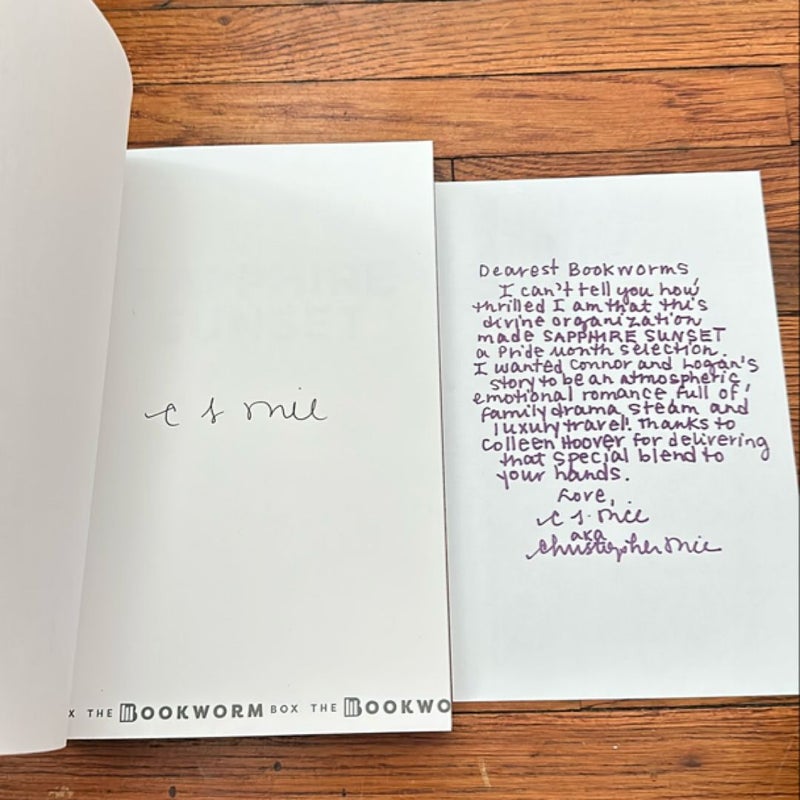 C S Rice
X THE BOOKWORM BOX THE BOOKWO
Dearest Bookworms,
I can't tell you how
thrilled I am that this
divine organization
made SAPPHIRE SUNSET
a Pride Month selection.
I wanted Connor and Logan's
story to be an atmospheric,
emotional romance full of
family drama, steam and
luxury travel. Thanks to
Colleen Hoover for delivering
that special blend to
your hands.
Love,
C S. Rice
aka
Christopher Rice